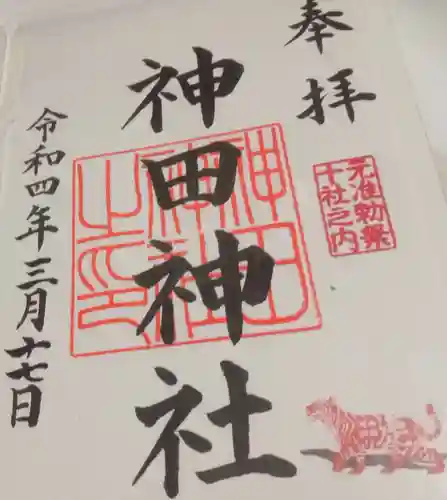 奉拝
元准勅祭
十社之内
神田神社
神田神社之印
令和四年三月十七日